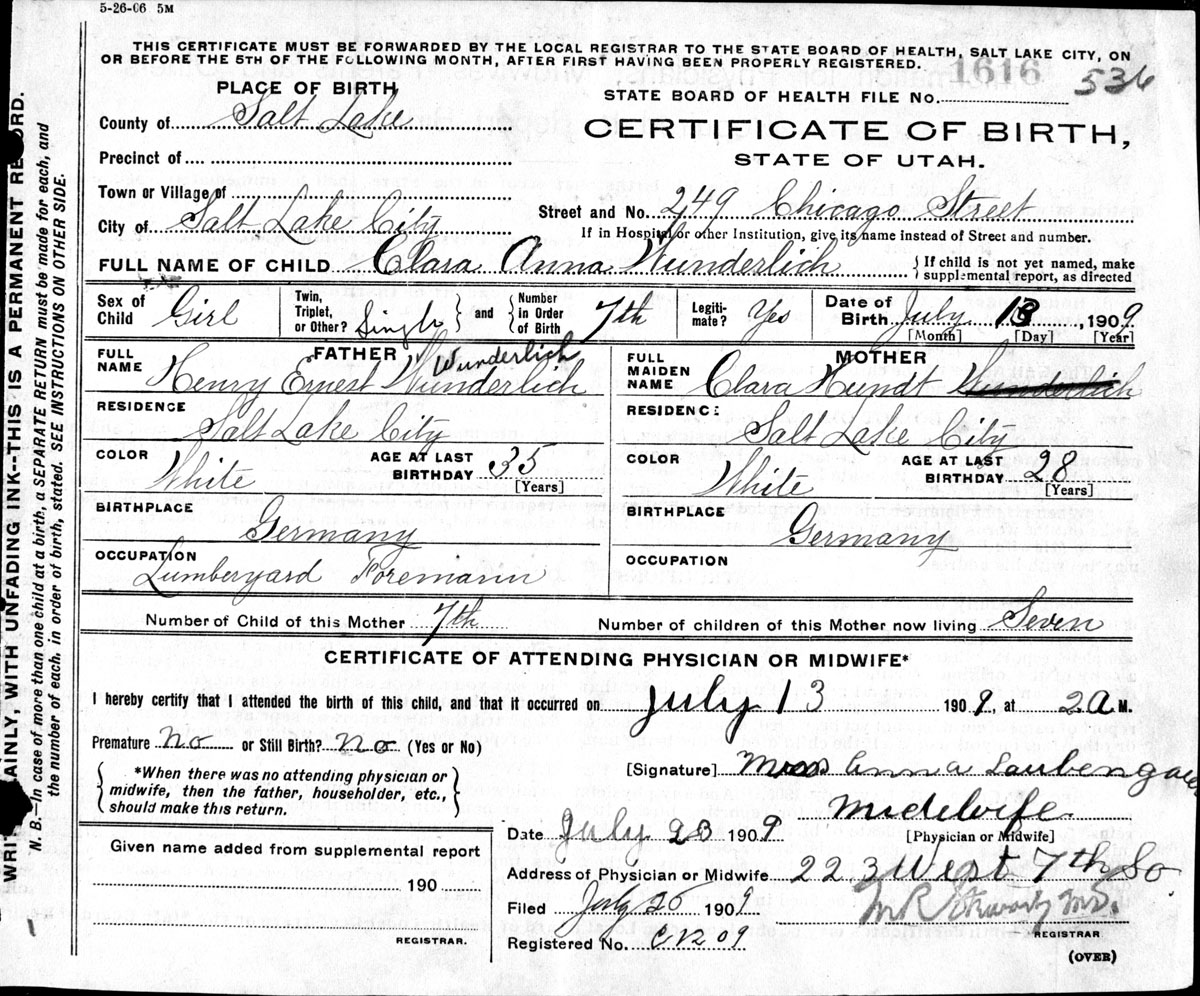 5-26-06 5M
THIS CERTIFICATE MUST BE FORWARDED BY THE LOCAL REGISTRAR TO THE STATE BOARD OF HEALTH, SALT LAKE CITY, ON
OR BEFORE THE 5TH OF THE FOLLOWING MONTH, AFTER FIRST HAVING BEEN PROPERLY REGISTERED.
1616
536
PLACE OF BIRTH
STATE BOARD OF HEALTH FILE No.
County of Salt Lake
CERTIFICATE OF BIRTH,
STATE OF UTAH.
Precinct of
Town or Village of
City of Salt Lake City
Street and No. 249 Chicago Street
If in Hospital or other Institution, give its name instead of Street and number.
FULL NAME OF CHILD Clara Anna Wunderlich
If child is not yet named, make
supplemental report, as directed
Sex of Child Girl
Twin, Triplet, or Other? Single and Number in Order of Birth 7th
Legitimate? Yes
Date of Birth July 13, 1909
[Month] [Day] [Year]
FATHER
FULL NAME Henry Ernest Wunderlich
Wunderlich
RESIDENCE
Salt Lake City
COLOR White
AGE AT LAST BIRTHDAY 35
[Years]
BIRTHPLACE
Germany
OCCUPATION
Lumberyard Foremann
MOTHER
FULL MAIDEN NAME Clara Kundt Wunderlich
RESIDENCE
Salt Lake City
COLOR White
AGE AT LAST BIRTHDAY 28
[Years]
BIRTHPLACE
Germany
OCCUPATION
Number of Child of this Mother 7th
Number of children of this Mother now living Seven
CERTIFICATE OF ATTENDING PHYSICIAN OR MIDWIFE*
I hereby certify that I attended the birth of this child, and that it occurred on July 13 1909, at 2 A M.
Premature No or Still Birth? No (Yes or No)
*When there was no attending physician or
midwife, then the father, householder, etc.,
should make this return.
[Signature] Anna
Midwife
[Physician or Midwife]
Date July 23 1909
Given name added from supplemental report
190
REGISTRAR.
Address of Physician or Midwife 223 West 7th So.
Filed July 26 1909
Registered No.
REGISTRAR
(OVER)
WRITE PLAINLY, WITH UNFADING INK--THIS IS A PERMANENT RECORD.
N. B.—In case of more than one child at a birth, a SEPARATE RETURN must be made for each, and
the number of each, in order of birth, stated. SEE INSTRUCTIONS ON OTHER SIDE.